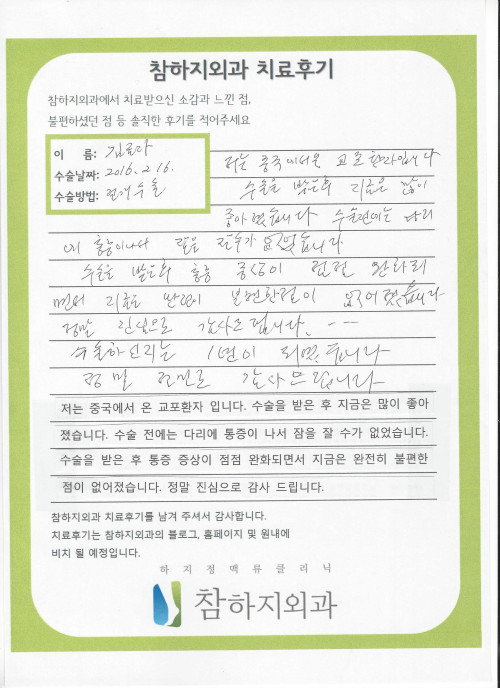 참하지외과 치료후기
참하지외과에서 치료받으신 소감과 느낀 점,
불편하셨던 점 등 솔직한 후기를 적어주세요
이 름:
수술날짜: 2016. 2. 16.
수술방법: 절개수술
저는 중국에서온 교포환자입니다
수술을 받은후 지금은 많이
좋아졌습니다 수술전에는 다리
에 통증이나서 잠을 잘수가 없었습니다
수술을 받은후 통증 증상이 점점 완화되
면서 지금은 완전이 불편한점이 없어졌습니다
정말 진심으로 감사드립니다.
수술하신지는 1년이 되였습니다
정말 감사드립니다
저는 중국에서 온 교포환자 입니다. 수술을 받은 후 지금은 많이 좋아
졌습니다. 수술 전에는 다리에 통증이 나서 잠을 잘 수가 없었습니다.
수술을 받은 후 통증 증상이 점점 완화되면서 지금은 완전히 불편한
점이 없어졌습니다. 정말 진심으로 감사 드립니다.
참하지외과 치료후기를 남겨 주셔서 감사합니다.
치료후기는 참하지외과의 블로그, 홈페이지 및 원내에
비치 될 예정입니다.
하지정맥류클리닉
참하지외과